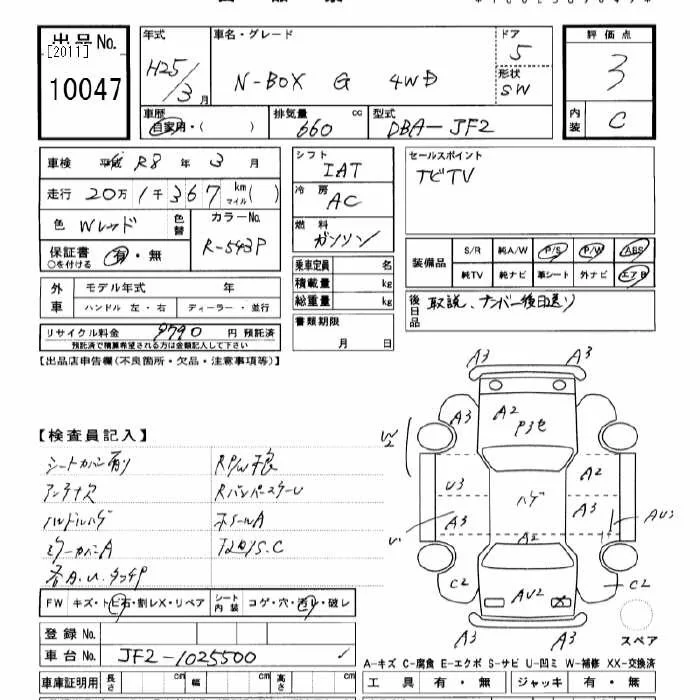 出品No.
[2011]
10047
年式
H25/3月
車名・グレード
N-BOX G 4WD
ドア
5
形状
SW
評価点
3
内装
C
車歴
自家用・( )
排気量
660 cc
型式
DBA-JF2
車検 平成 R8 年 3 月
走行 20万1千367 km マイル( )
色 Wレッド 色替
カラーNo.
R-543P
保証書 有・無
○を付ける
シフト
IAT
冷房
AC
燃料
ガソリン
セールスポイント
ナビTV
装備品
S/R 純A/W P/S P/W ABS
純TV 純ナビ 革シート 外ナビ エアB
乗車定員 名
積載量 kg
総重量 kg
書類期限
月 日
後日品
取説、ナンバー後日送り
外車
モデル年式 年
ハンドル 左・右 ディーラー・並行
リサイクル料金 9790 円 預託済
預託済で精算希望される方は金額記入して下さい
【出品店申告欄(不良箇所・欠品・注意事項等)】
【検査員記入】
シートカバー有り
R P/W不良
アンテナ欠
RバンパースレU
ハンドルハゲ
ホイールA
ミラーカバーA
各A.U.タッチP
FW キズ・トビ石・割レX・リペア シート内装 コゲ・穴・汚レ・破レ
登録No.
車台No. JF2-1025500
車庫証明用 長さ cm 幅 cm 高さ cm
A3 A3
A3 A2 A3
P3色
W2
U3 ハゲ A2
A3 A3 AU3
A2
C2 AU2 C2
A3 A3
スペア
A-キズ C-腐食 E-エクボ S-サビ U-凹ミ W-補修 XX-交換済
工具 有・無 ジャッキ 有・無